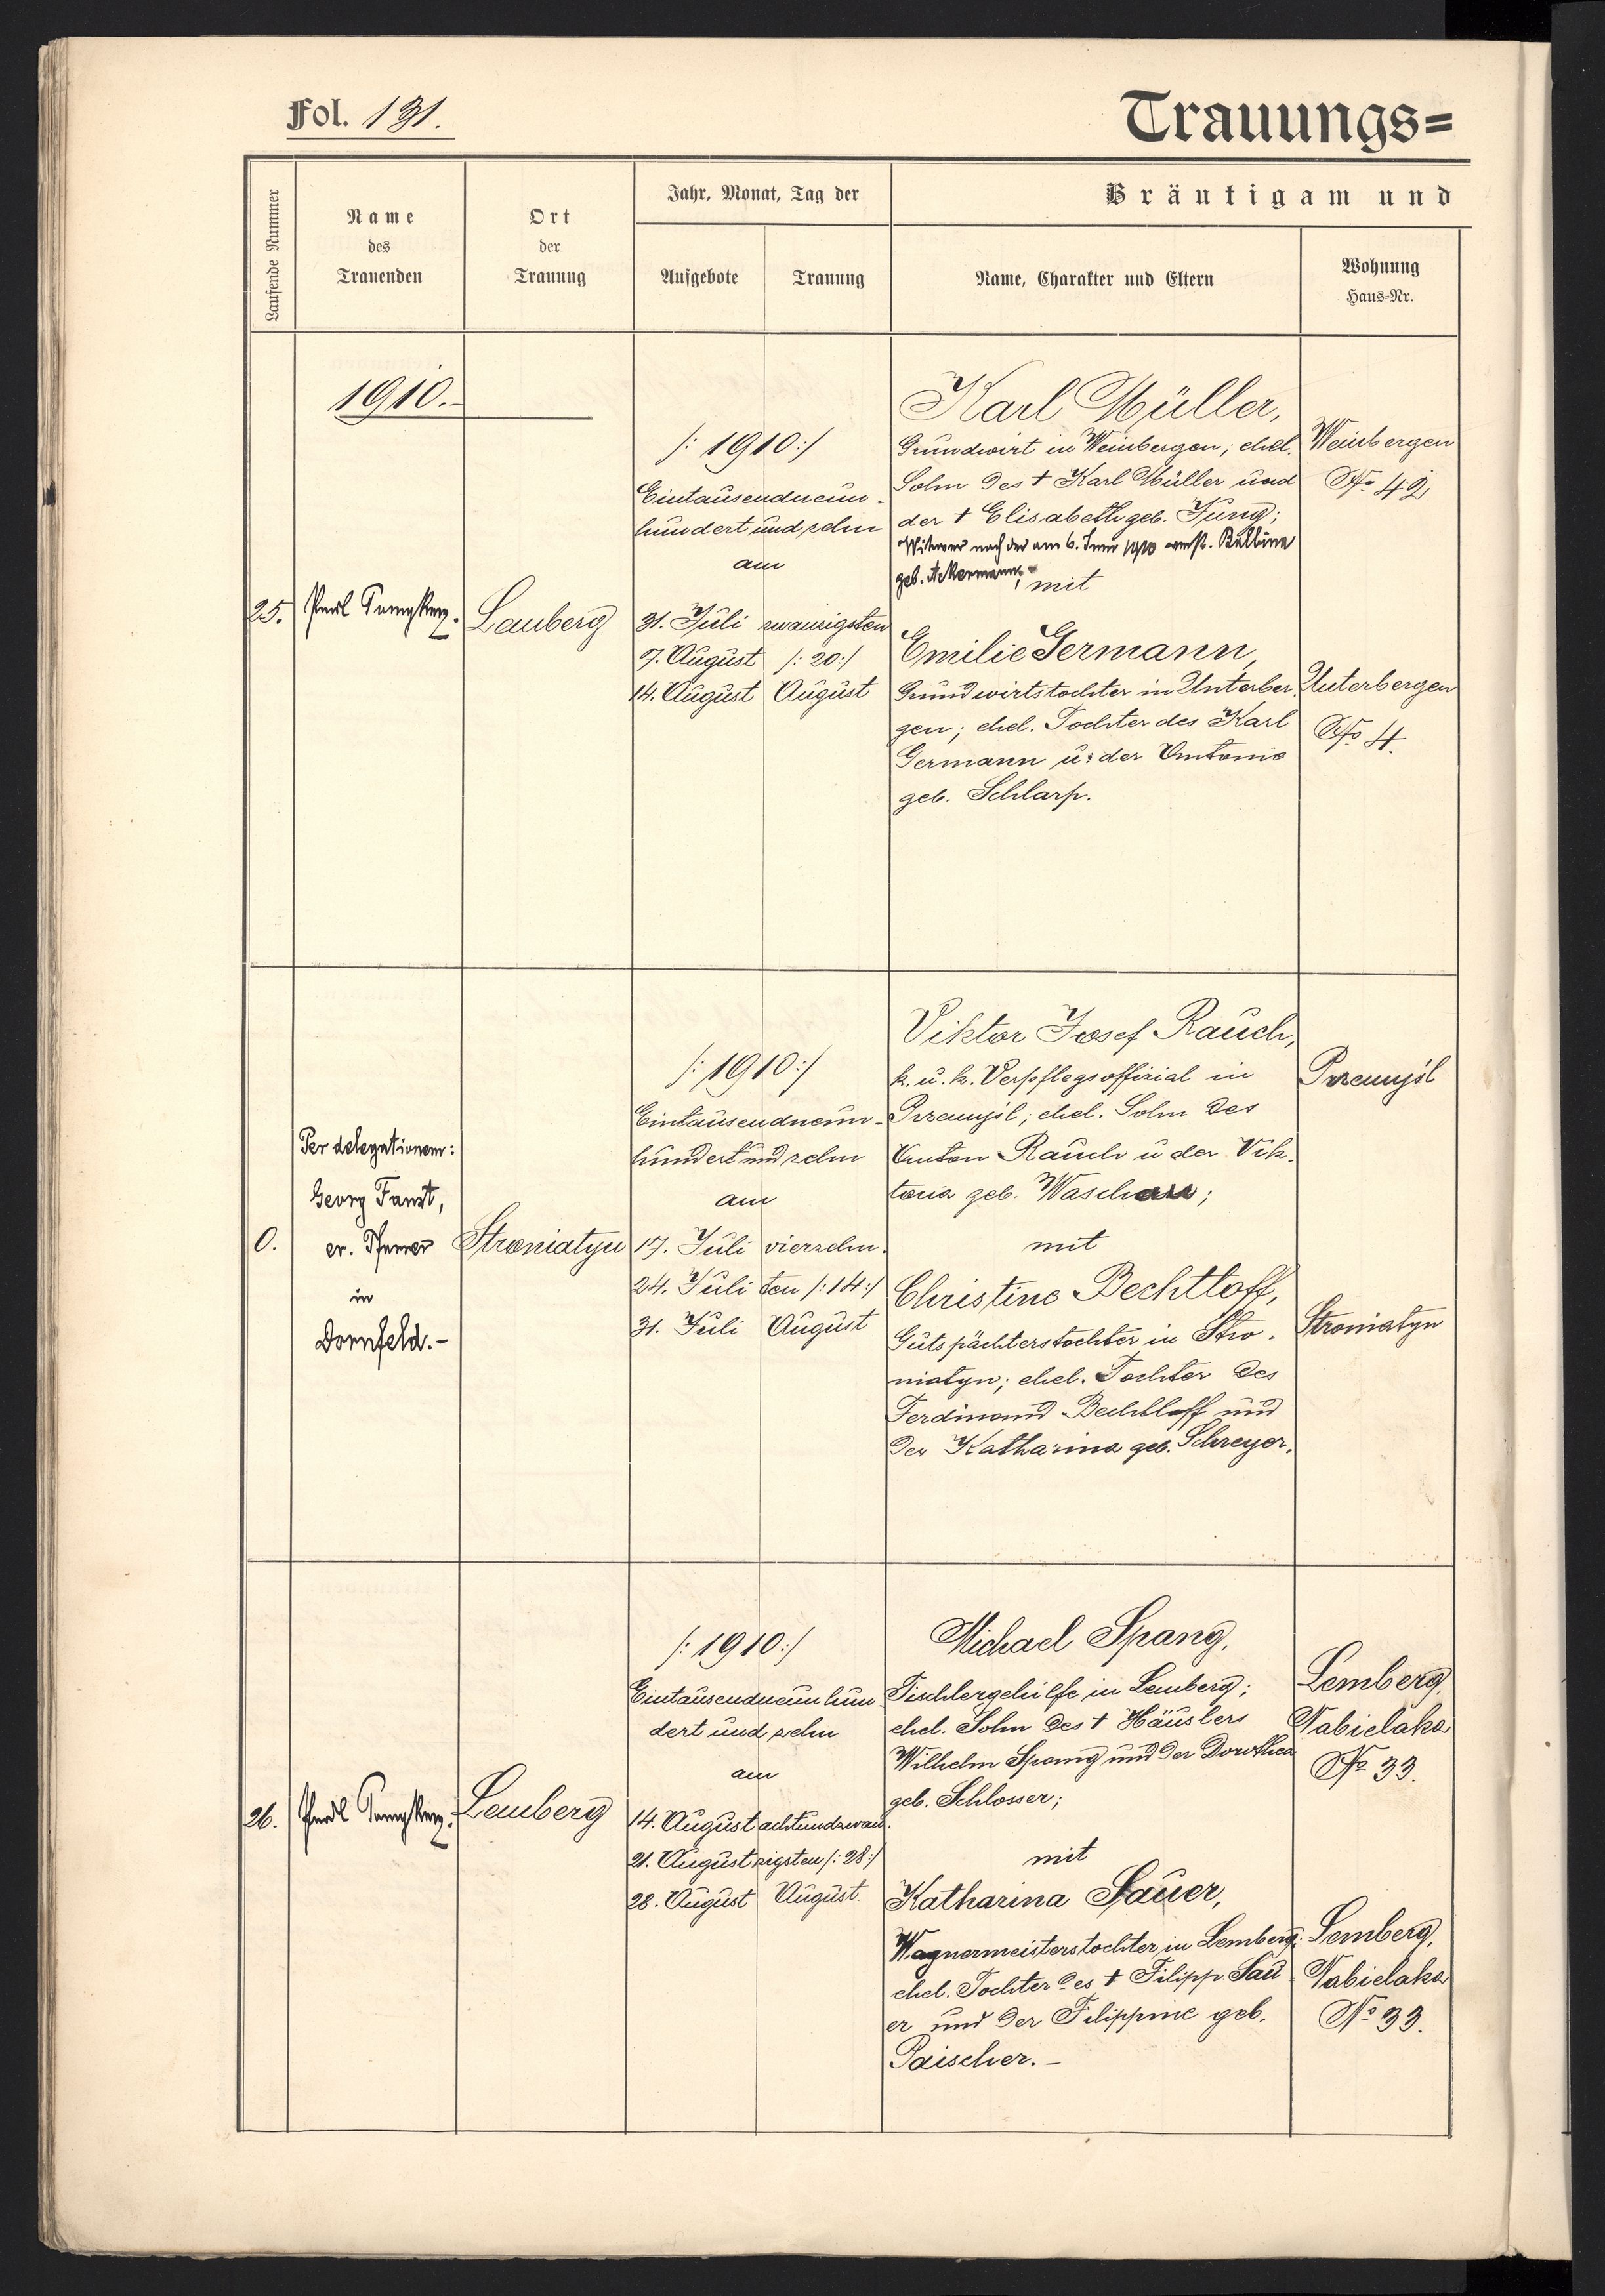 Fol. 131.
Trauungs=
Laufende Nummer
Name
des
Trauenden
Ort
der
Trauung
Jahr, Monat, Tag der
Aufgebote
Trauung
Bräutigam und
Name, Charakter und Eltern
Wohnung
Haus-Nr.
1910.
25.
Lemberg
/: 1910 :/
Eintausendneun-
hundert und zehn
am
31. Juli zwanzigsten
7. August /: 20 :/
14. August August
Karl Müller,
Grundwirt in Weinbergen; ehel.
Sohn des † Karl Müller und
der † Elisabeth geb. Jung;
Witwer nach der am 6. Juni 1910 verst. Balbina
geb. Ackermann; mit
Emilie Germann,
Grundwirtstochter in Unterber-
gen; ehel. Tochter des Karl
Germann u: der Antonie
geb. Schlarp.
Weinbergen
No 42,
Unterbergen
No 4.
0.
Per delegationem:
Georg Faust,
ev. Pfarrer
in
Dornfeld.-
Stroniatyn
/: 1910 :/
Eintausendneun-
hundert und zehn
am
17. Juli vierzehn-
24. Juli ten /: 14 :/
31. Juli August
Viktor Josef Rauch,
k. u. k. Verpflegsoffizial in
Przemyśl; ehel. Sohn des
Anton Rauch u der Vik-
toria geb. Waschau;
mit
Christine Bechtloff,
Gutspächterstochter in Stro-
niatyn; ehel. Tochter des
Ferdinand Bechtloff und
der Katharina geb. Schreyer.
Przemyśl
Stroniatyn
26.
Lemberg
/: 1910 :/
Eintausendneunhun-
dert und zehn
am
14. August achtundzwan-
21. August zigsten /: 28 :/
28. August August.
Michael Spang,
Tischlergehilfe in Lemberg;
ehel. Sohn des † Häuslers
Wilhelm Spang und der Dorothea
geb. Schlosser;
mit
Katharina Sauer,
Wagnermeisterstochter in Lemberg;
ehel. Tochter des † Filipp Sau-
er und der Filippine geb.
Paischer.-
Lemberg,
Nabielaka
No 33.
Lemberg,
Nabielaka
No 33.